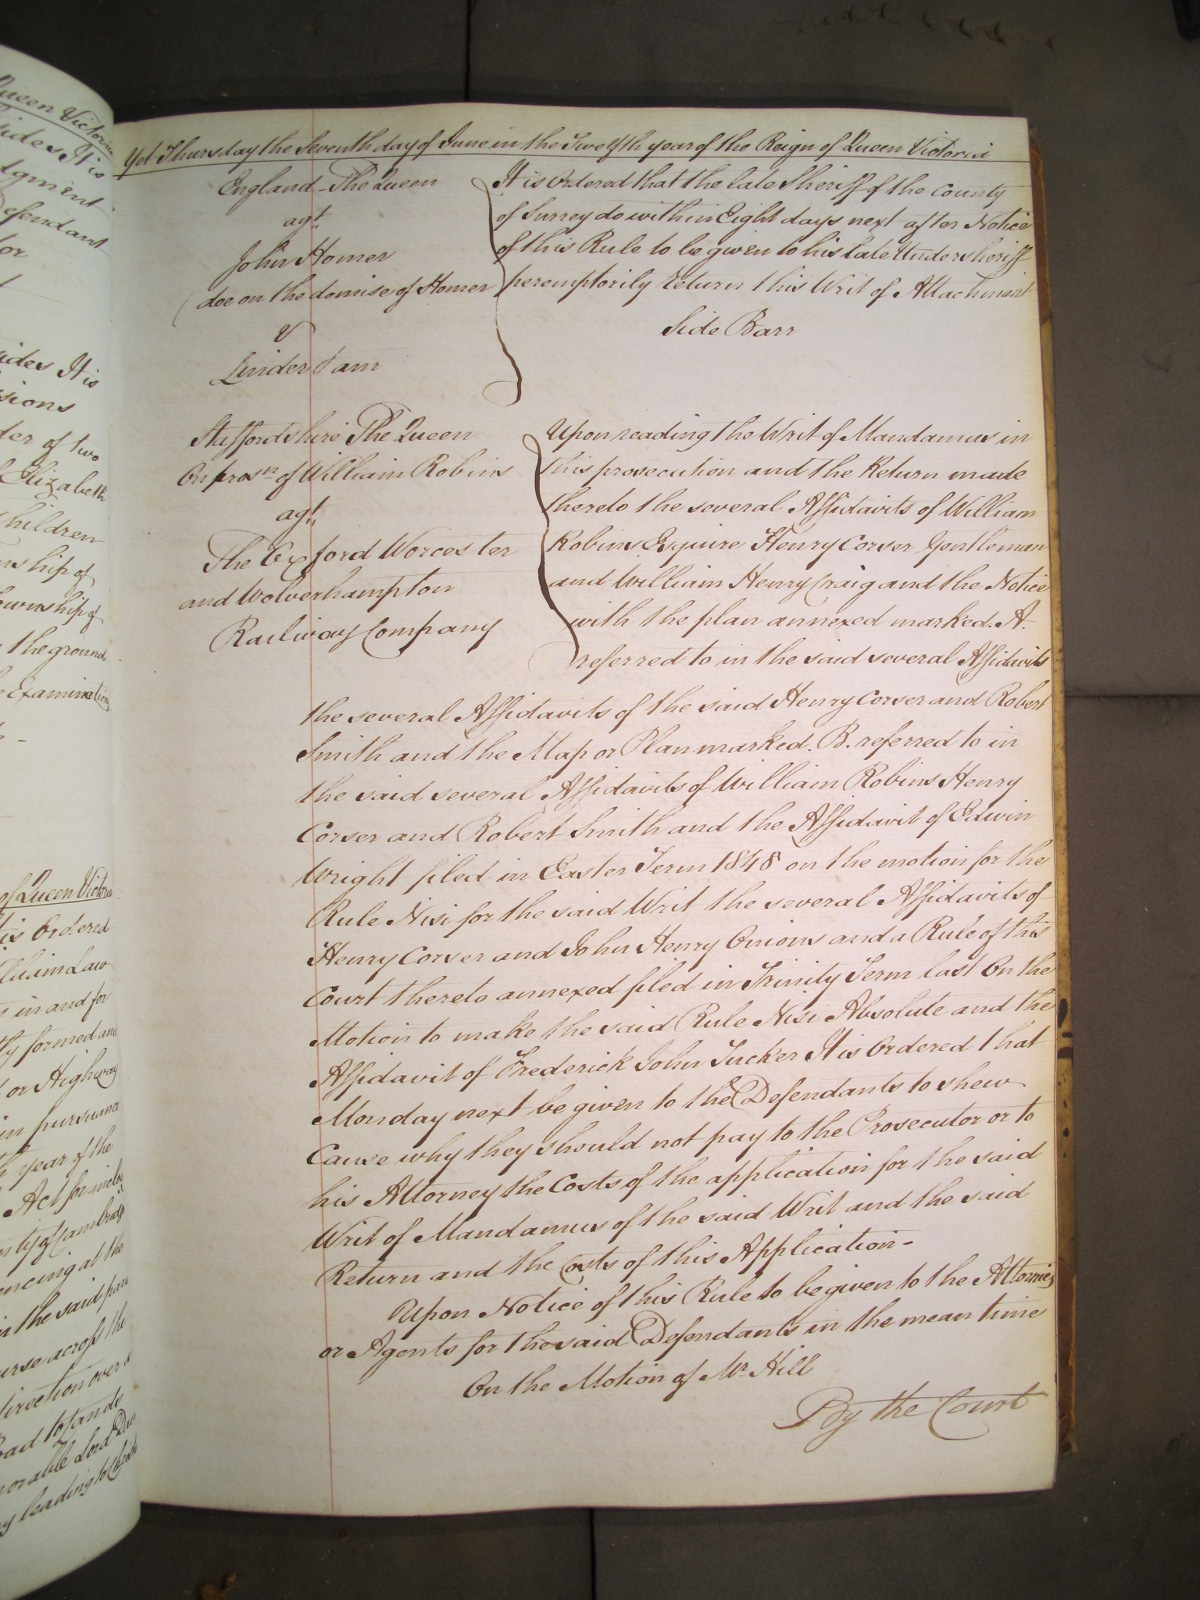 Yet Thursday the Seventh day of June in the Twelfth year of the Reign of Queen Victoria
England The Queen
agt
John Homer
(doe on the demise of Homer
v
Linder Tam
It is Ordered that the late Sheriff of the County
of Surrey do within Eight days next after Notice
of this Rule to be given to his late Undersheriff
peremptorily return this Writ of Attachment
Side Barr
Staffordshire The Queen
On prosn of William Robins
agt
The Oxford Worcester
and Wolverhampton
Railway Company
Upon reading the Writ of Mandamus in
this prosecution and the Return made
thereto the several Affidavits of William
Robins Esquire Henry Corser Gentleman
and William Henry Craig and the Notice
with the plan annexed marked. A.
referred to in the said several Affidavits
the several Affidavits of the said Henry Corser and Robert
Smith and the Map or Plan marked. B. referred to in
the said several Affidavits of William Robins Henry
Corser and Robert Smith and the Affidavit of Edwin
Wright filed in Easter Term 1848 on the motion for the
Rule Nisi for the said Writ the several Affidavits of
Henry Corser and John Henry Onions and a Rule of this
Court thereto annexed filed in Trinity Term last On the
Motion to make the said Rule Nisi Absolute and the
Affidavit of Frederick John Tucker It is Ordered that
Monday next be given to the Defendants to shew
Cause why they should not pay to the Prosecutor or to
his Attorney the Costs of the application for the said
Writ of Mandamus of the said Writ and the said
Return and the Costs of this Application -
Upon Notice of this Rule to be given to the Attornies
or Agents for the said Defendants in the mean time
On the Motion of Mr Hill
By the Court